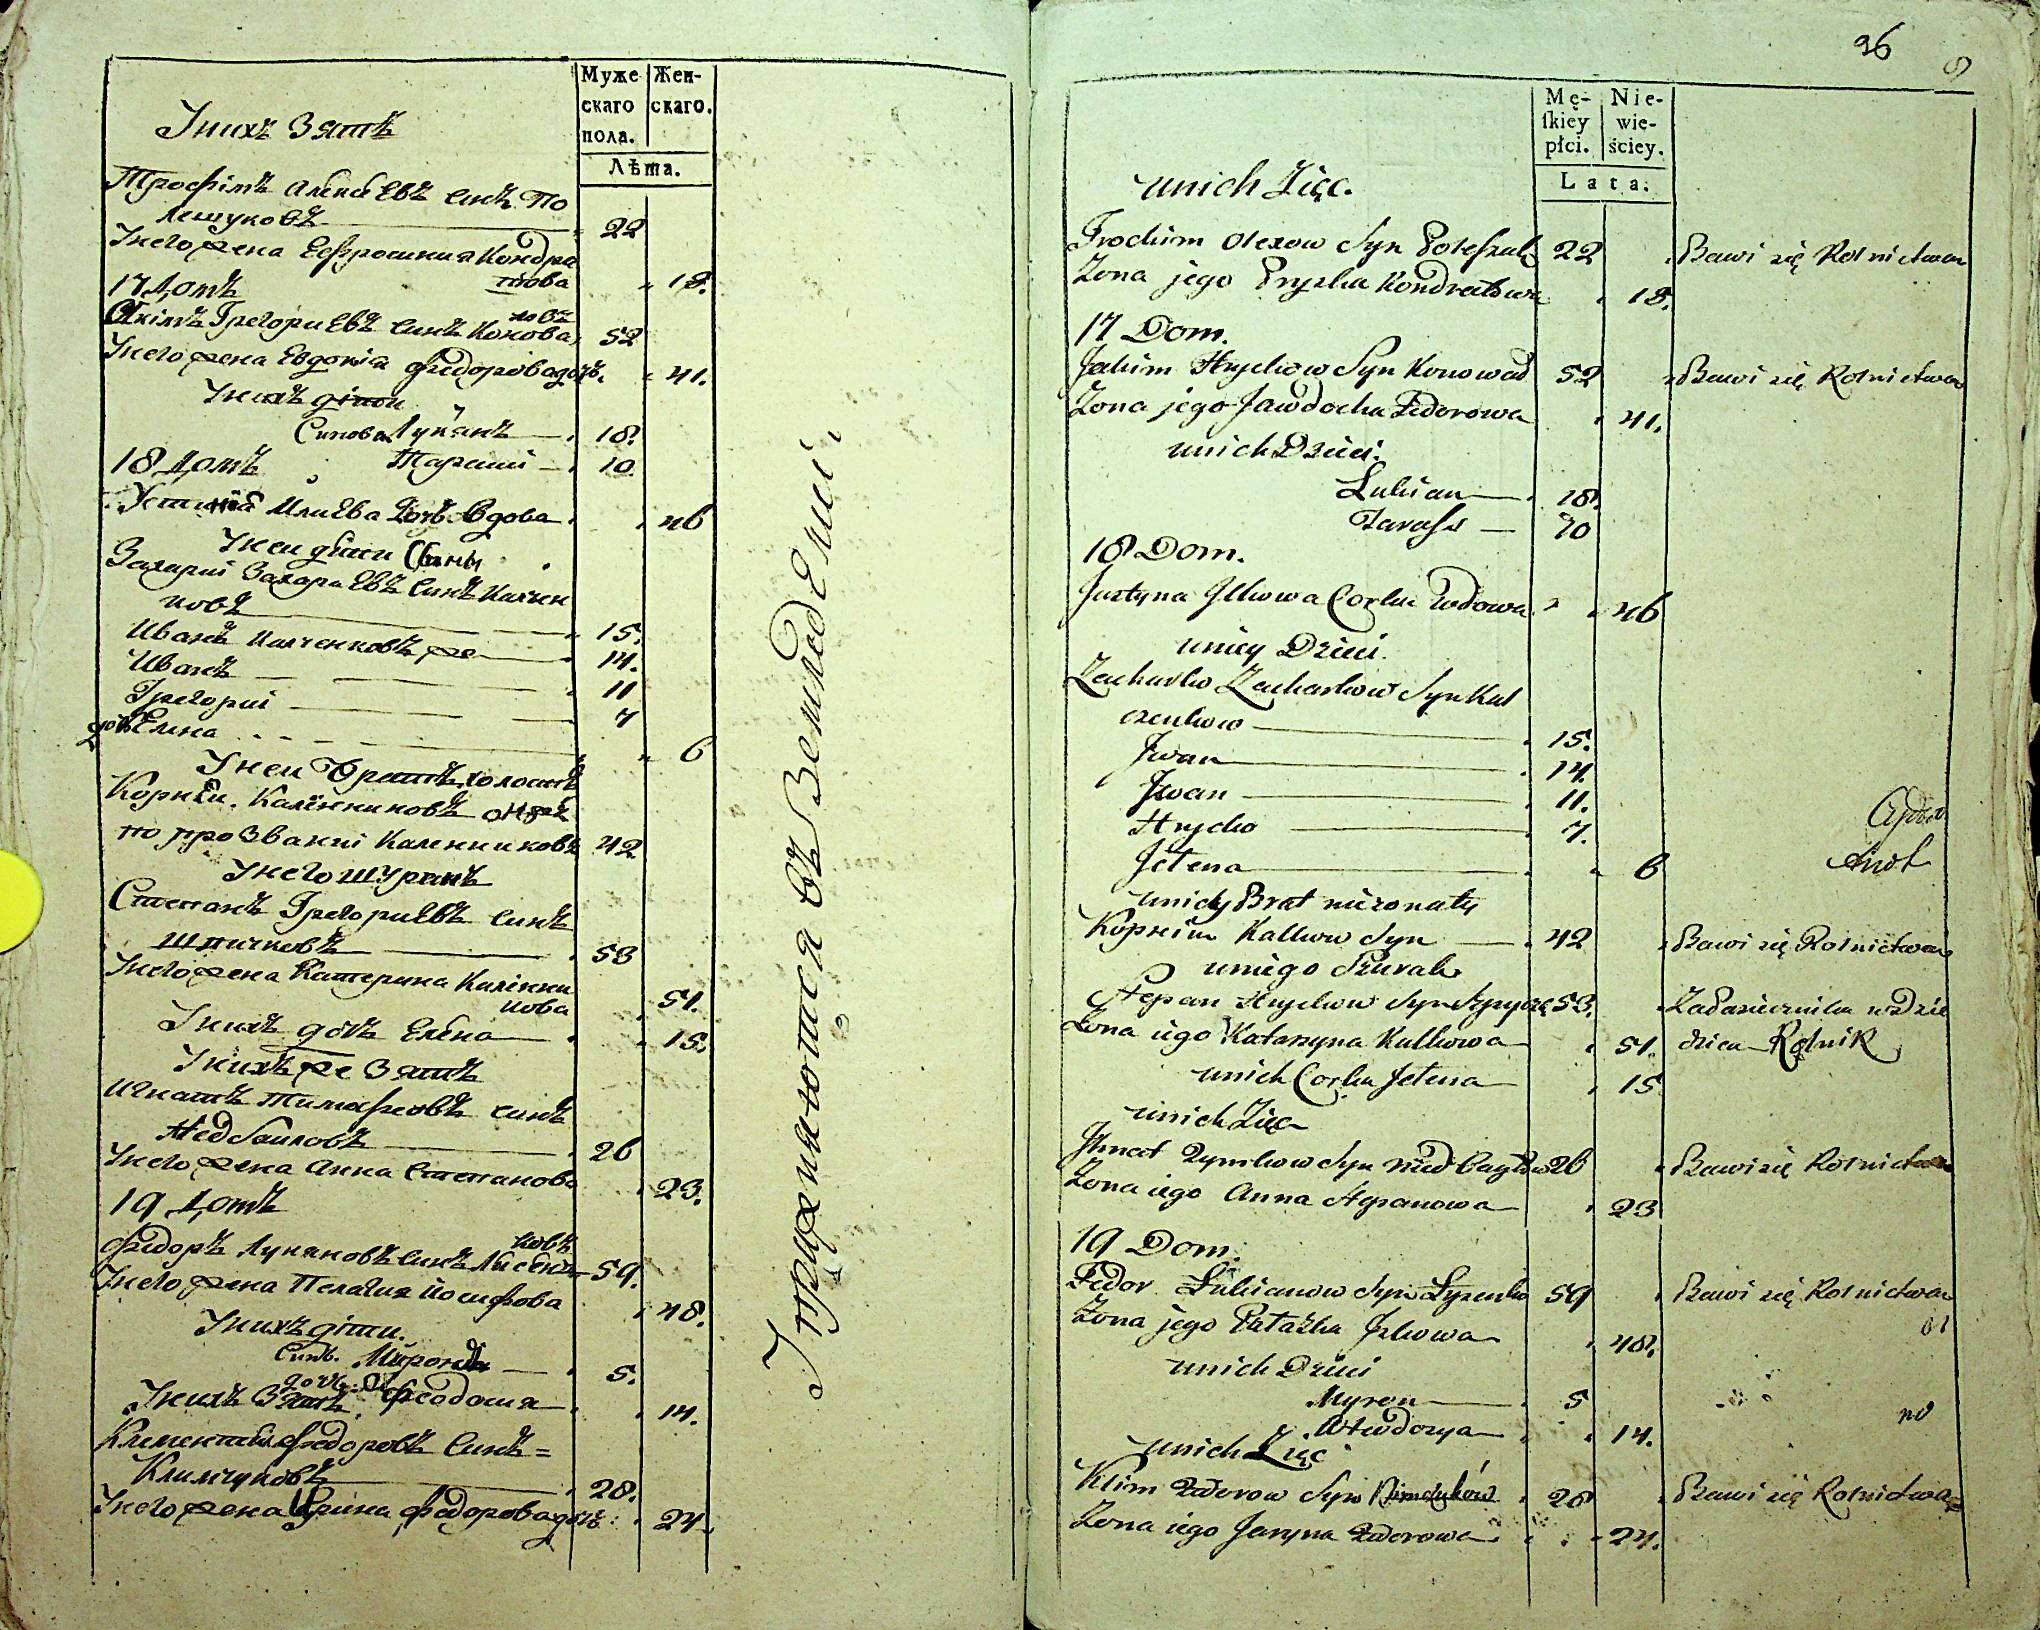 Муже
скаго
пола.
Жен-
скаго.
Лѣта.
Унихъ Зятъ
Трофимъ Алексѣевъ синъ По
лещуковъ 22
Унего жена Ефросиния Кондра
това 18.
17 Домъ
Якимъ Грегориевъ синъ Конова
ловъ 52
Унего жена Евдокия Федорова дочь. 41.
Унихъ діти
Синова Лукянъ 18.
Тараsий 10
18 Домъ
Устиния Илиева дочь Вдова 46
Унеи діти Сыны
Захарий Захариевъ Синъ Калчен
ковъ 15.
Иванъ Калченковъ же 14.
Иванъ 11
Грегорий 7
дочь Елена 6
Унеи Братъ холостъ
Корнѣи Калѣнниковъ онъ же
по прозванию Каленниковъ 42
Унего шуринъ
Степанъ Грегориевъ синъ
Шпичковъ 53
Унего жена Катерина Калѣнни
кова 51.
Унихъ дочь Елена 15.
Унихъ же Зятъ
Игнатъ Тимофеевъ синъ
Недбайловъ 26
Унего жена Анна Степанова 23.
19 Домъ
Федоръ Лукяновъ синъ Лисен
ковъ 59.
Унего жена Пелагия Иосифова 48.
Унихъ діти.
Синъ. Миронъ 5.
дочь Феодосия 14.
Унихъ Зятъ.
Климентий Федоровъ Синъ=
Климчуковъ 28.
Унего жена Ирина Федорова дочь: 24.
Упражняются въ Земледелии
96
Mę-
ſkiey
płci.
Nie-
wie-
ściey.
Lata.
unich Zięc.
Trochim Olexow Syn Poleszuk 22 Bawi się Rolnictwem
Zona jego Pryska Kondratowa 18.
17 Dom.
Jakim Hryckow Syn Konował 52 Bawi się Rolnictwem
Zona jego Jawdocha Fedorowa 41.
unich Dzieci:
Lukian 18.
Taraſs 10
18 Dom.
Justyna Ilkowa Corka Wdowa 46
uniey Dzieci.
Zacharko Zacharkow Syn Kal
czenkow 15.
Iwan 14.
Iwan 11.
Hrycko 7.
Jelena 6
uniey Brat nieżonaty
Корнiи Kalkow Syn 42 Bawi się Rolnictwem
uniego Szurak
Stepan Hryckow Syn 53.
Zona iego Katarzyna Kalkowa 51. Rolnik
unich Corka Jelena 15
unich Zięc
Ihnat Tymkow Syn Niedbayłow 26 Bawi się Rolnictwem
Zona iego Anna Stepanowa 23
19 Dom.
Fedor Lukianow Syn Łysenko 59 Bawi się Rolnictwem
Zona jego Pałażka Jskowa 48.
unich Dzieci
Myron 5
Fewdozya 14.
unich Zięć
Klim Fedorow Syn Klimczuków 28 Bawi się Rolnictwem
Zona iego Jaryna Fedorowa 24.